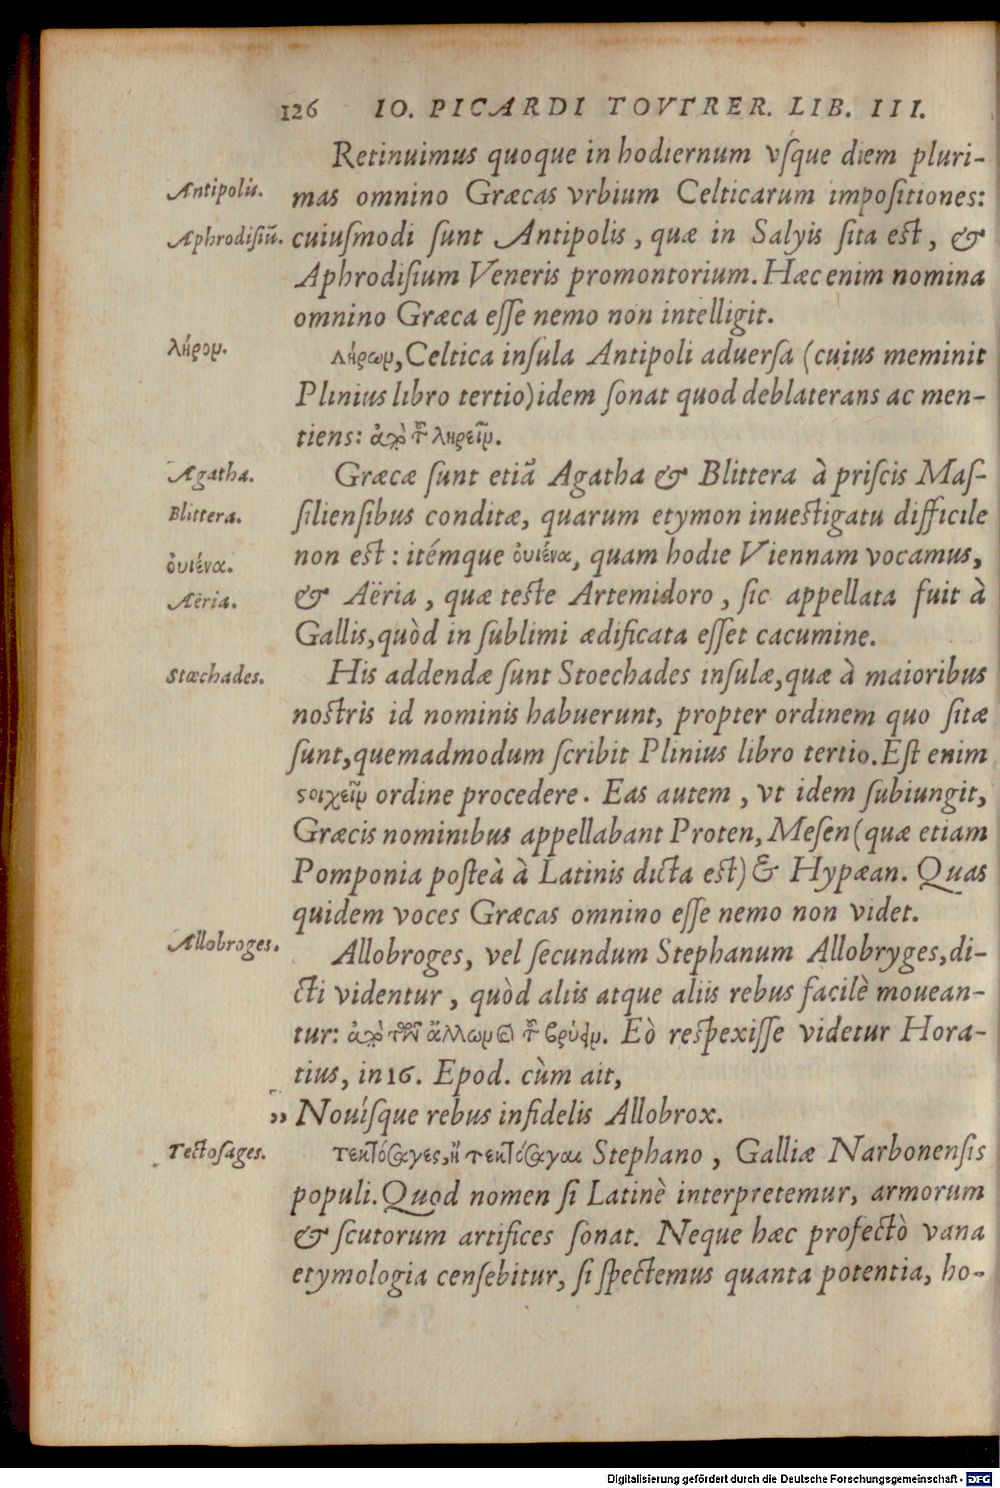 126 IO. PICARDI TOVTRER. LIB. III.
Retinuimus quoque in hodiernum vſque diem pluri-
Antipolis. mas omnino Græcas vrbium Celticarum impoſitiones:
Aphrodiſiū. cuiuſmodi ſunt Antipolis, quæ in Salyis ſita eſt, &
Aphrodiſium Veneris promontorium. Hæc enim nomina
omnino Græca eſſe nemo non intelligit.
λήρον. λήρων, Celtica inſula Antipoli aduerſa (cuius meminit
Plinius libro tertio) idem ſonat quod deblaterans ac men-
tiens: ἀπὸ τοῦ ληρεῖν.
Agatha. Græcæ ſunt etiā Agatha & Blittera à priſcis Maſ-
Blittera. ſilienſibus conditæ, quarum etymon inueſtigatu difficile
ὀυιένα. non eſt: itémque ὀυιένα, quam hodie Viennam vocamus,
Aëria. & Aëria, quæ teſte Artemidoro, ſic appellata fuit à
Gallis, quòd in ſublimi ædificata eſſet cacumine.
Stœchades. His addendæ ſunt Stoechades inſulæ, quæ à maioribus
noſtris id nominis habuerunt, propter ordinem quo ſitæ
ſunt, quemadmodum ſcribit Plinius libro tertio. Eſt enim
ϛοιχεῖν ordine procedere. Eas autem, vt idem ſubiungit,
Græcis nominibus appellabant Proten, Meſen (quæ etiam
Pomponia poſteà à Latinis dicta eſt) & Hypæan. Quas
quidem voces Græcas omnino eſſe nemo non videt.
Allobroges. Allobroges, vel ſecundum Stephanum Allobryges, di-
cti videntur, quòd aliis atque aliis rebus facilè mouean-
tur: ἀπὸ τῶν ἄλλων καὶ τοῦ βρύειν. Eò reſpexiſſe videtur Hora-
tius, in 16. Epod. cùm ait,
„ Nouíſque rebus infidelis Allobrox.
Tectoſages. τεκτόσαγες, ἢ τεκτόσαγαι Stephano, Galliæ Narbonenſis
populi. Quod nomen ſi Latinè interpretemur, armorum
& ſcutorum artifices ſonat. Neque hæc profectò vana
etymologia cenſebitur, ſi ſpectemus quanta potentia, ho-
Digitalisierung gefördert durch die Deutsche Forschungsgemeinschaft - DFG